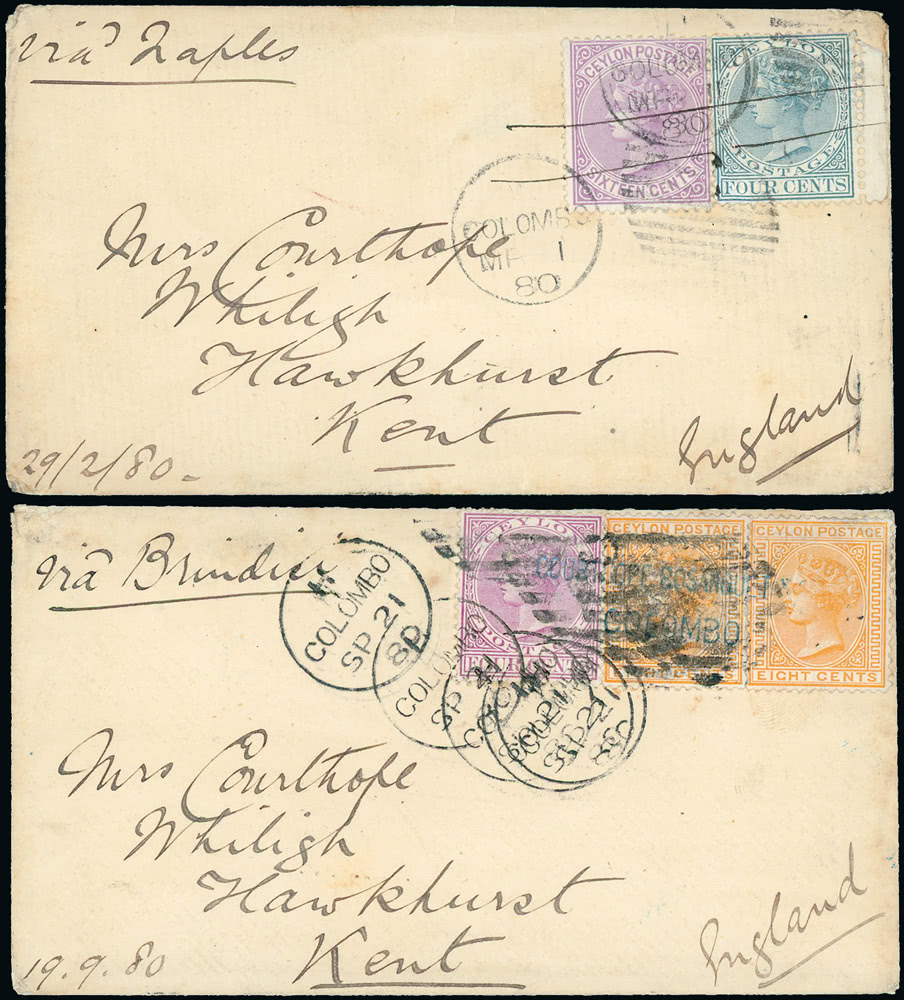 via Naples
CEYLON POSTAGE
SIXTEEN CENTS
CEYLON
POSTAGE
FOUR CENTS
COLOMBO
MR 1
80
Mrs Courthope
Whiligh
Hawkhurst
Kent
England
29/2/80
via Brindisi
COLOMBO
SP 21
80
COLOMBO
SP 21
COLOMBO
SP 21
80
CEYLON
POSTAGE
FOUR CENTS
CEYLON POSTAGE
COLOMBO
CEYLON POSTAGE
EIGHT CENTS
Mrs Courthope
Whiligh
Hawkhurst
Kent
England
19.9.80